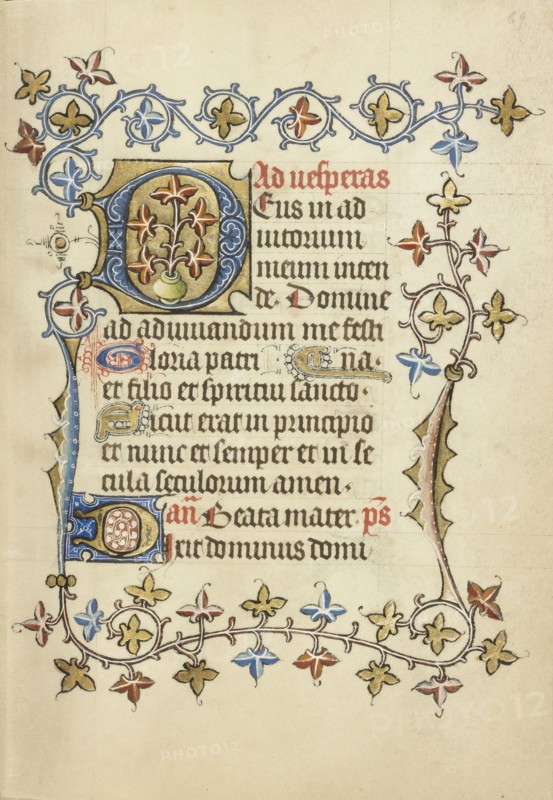 69
Ad uesperas
DEus in ad
iutorium
meum inten
de. Domine
ad adiuuandum me festi
Gloria patri na.
et filio et spiritui sancto.
Sicut erat in principio
et nunc et semper et in se
cula seculorum amen.
añ Beata mater. p̄s
Dixit dominus domi
PHOTO12